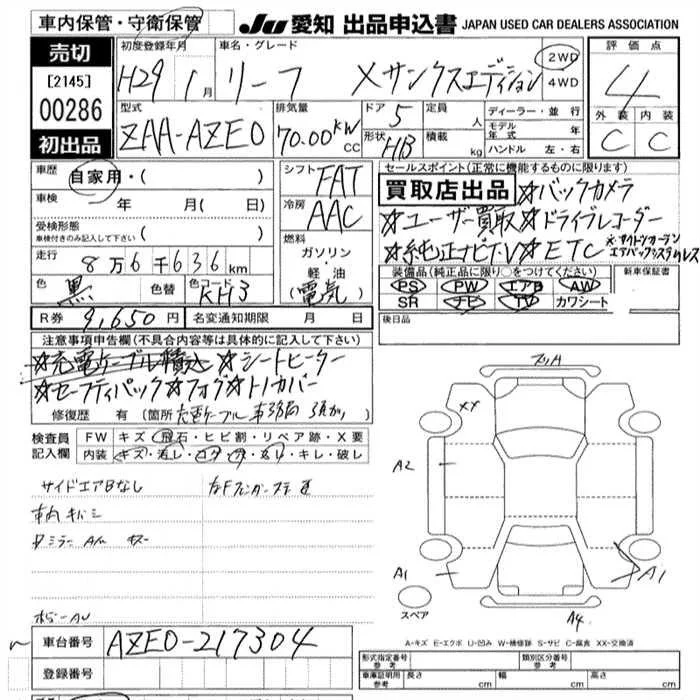 車内保管・守衛保管
JU 愛知 出品申込書 JAPAN USED CAR DEALERS ASSOCIATION
売切
[2145]
00286
初出品
初度登録年月
H29年 1月
車名・グレード
リーフ Xサンクスエディション
2WD
4WD
評価点
4
外装 内装
C C
型式
ZAA-AZE0
排気量
70.00KW CC
ドア 5
形状 HB
定員 人
積載 kg
ディーラー・並行
モデル年式 年
ハンドル 左・右
車歴 自家用・( )
車検 年 月( 日)
受検形態
車検付きのみ記入して下さい ( )
走行 8万6千636km
色 黒 色替 色コード KH3
シフト FAT
冷房 AAC
燃料
ガソリン・軽油
(電気)
セールスポイント(正常に機能するものに限ります)
買取店出品 ☆バックカメラ
☆ユーザー買取☆ドライブレコーダー
☆純正ナビTV☆ETC
装備品(純正品に限り○をつけてください)
PS PW エアB AW
SR ナビ TV カワシート
新車保証書
後日品
R券 9,650円 名変通知期限 月 日
注意事項申告欄(不具合内容等は具体的に記入して下さい)
☆充電ケーブル積込☆シートヒーター
☆セーフティパック☆フォグ☆トノカバー
修復歴 有 (箇所 充電ケーブル 事務局
検査員記入欄
FW キズ・飛石・ヒビ割・リペア跡・X要
内装 キズ・汚し・コゲ・穴・ キレ・破し
サイドエアBなし
車内 キバミ
スペア
XX
A2
A1
A1
A4
A-キズ E-エクボ U-凹み W-補修跡 S-サビ C-腐食 XX-交換済
車台番号 AZE0-217304
登録番号
形式指定番号 参考
類別区分番号 参考
車庫証明用 参考 長さ 幅 高さ